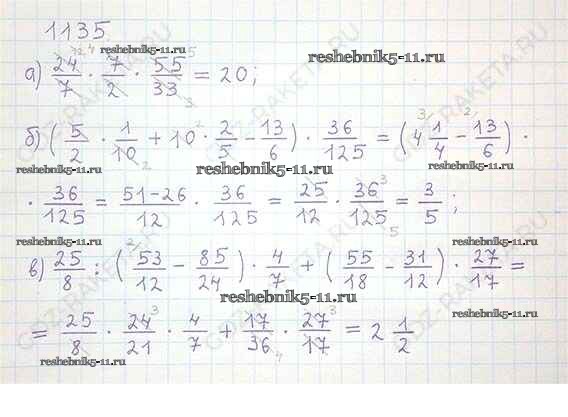 1135.
reshebnik5-11.ru
reshebnik5-11.ru
а) 24/7 · 7/2 · 55/33 = 20;
б) (5/2 · 1/10 + 10 · 2/5 - 13/6) · 36/125 = (4 1/4 - 13/6) ·
reshebnik5-11.ru
reshebnik5-11.ru
· 36/125 = 51-26/12 · 36/125 = 25/12 · 36/125 = 3/5;
reshebnik5-11.ru
в) 25/8 : (53/12 - 85/24) · 4/7 + (55/18 - 31/12) · 27/17 =
reshebnik5-11.ru
= 25/8 · 24/21 · 4/7 + 17/36 · 27/17 = 2 1/2
reshebnik5-11.ru
reshebnik5-11.ru
GDZ-RAKETA.RU